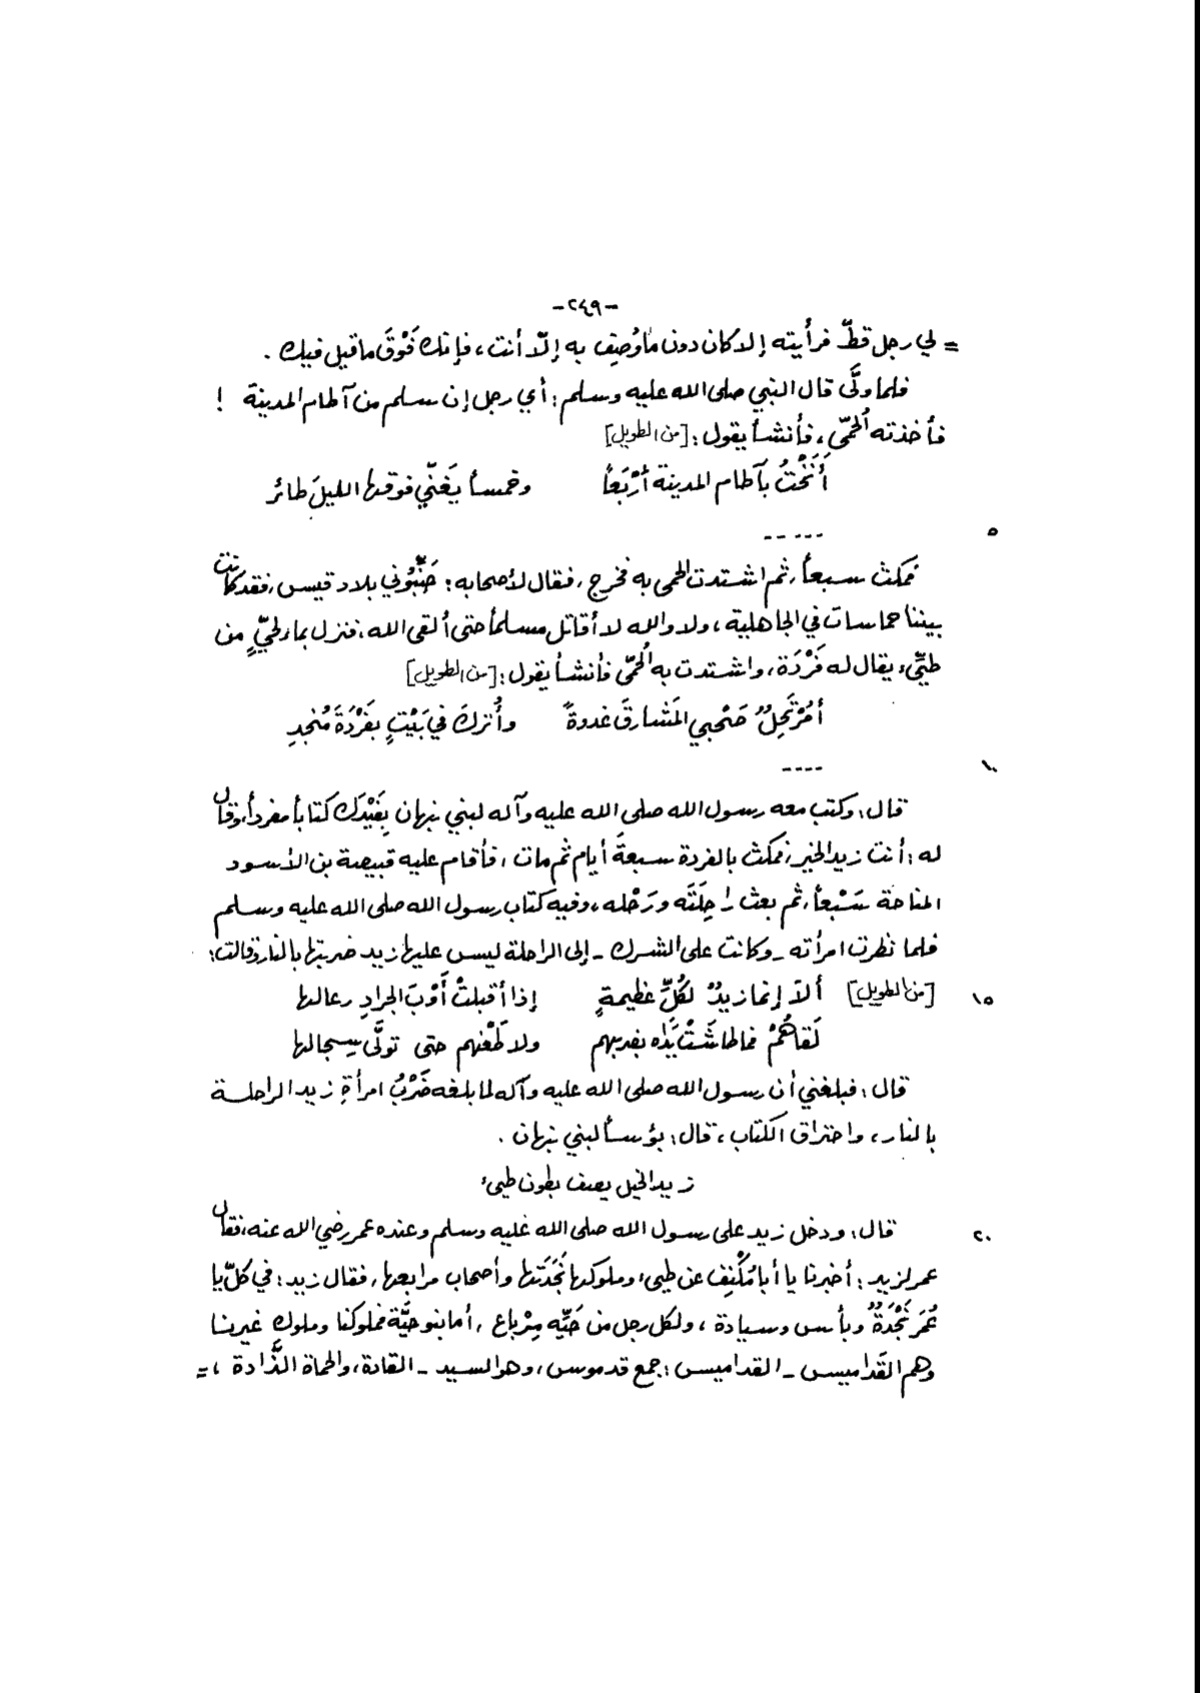 -٢٤٩-
= لي رجل قطّ فرأيته إلا كان دون ما وُصِف به إلّا أنت، فإنك فَوْقَ ما قيل فيك .
فلما ولَّى قال النبي صلى الله عليه وسلم: أي رجل إن سلم من آطام المدينة !
فأخذته الُحمّى، فأنشأ يقول: [من الطويل]
أَنَخْتُ بآطام المدينة أرْبَعاً وخمساً يَغَنّي فوقها الليلَ طائر
٥
-----
فمكث سبعاً، ثم اشتدت الحمى به فخرج، فقال لأصحابه: جَنِّبُوني بلاد قيس، فقد كانت
بيننا حماسات في الجاهلية، ولا والله لا أقاتل مسلماً حتى ألقى الله، فنزل بماء لحيٍّ من
طيِّء يقال له فَرْدَة، واشتدت به الُحمّى فأنشأ يقول: [من الطويل]
أمُرْتَحِلٌ صَحْبي المَشارقَ غدوةً وأُتركَ في بَيْتٍ بفَرْدَةَ مُنْجِدِ
١٠
----
قال: وكتب معه رسول الله صلى الله عليه وآله لبني نبهان بِفَيْدَك كتاباً مفرداً، وقال
له: أنت زيد الخير، فمكث بالفردة سبعةَ أيام ثم مات، فأقام عليه قبيصة بن الأسود
المناحة سَبْعاً، ثم بعث راحِلَتَه ورَحْله، وفيه كتاب رسول الله صلى الله عليه وسلم
فلما نظرت امرأته ـ وكانت على الشرك ـ إلى الراحلة ليس عليها زيد ضربتها بالنار وقالت:
[من الطويل] ألاَ إنما زيدٌ لكُلِّ عظيمةٍ إذا أقبلتْ أَوْبَ الجرادِ رعالها
١٥
لَقاهُمْ فما طاشَتْ يَدَاه بضربهم ولا طَعْنهم حتى تولَّى سِجالها
قال: فبلغني أن رسول الله صلى الله عليه وآله لما بلغه ضَرْبُ امرأةِ زيد الراحلة
بالنار، واحتراق الكتاب، قال: بؤساً لبني نبهان .
زيد الخيل يصف بطون طيء
قال: ودخل زيد على رسول الله صلى الله عليه وسلم وعنده عمر رضي الله عنه، فقال
٢٠
عمر لزيد: أخبرنا يا أبا مُكْنِف عن طيء وملوكها نَجْدَتها وأصحاب مرابعها، فقال زيد: في كلّ يا
عُمَر نَجْدَةٌ وبأس وسيادة، ولكل رجل من حَيِّه مِرْباع، أما بنو حيَّة فملوكنا وملوك غيرنا
وهم القَداميس ـ القداميس: جمع قدموس، وهو السيد ـ القادة، والحماة الذَّادة، =